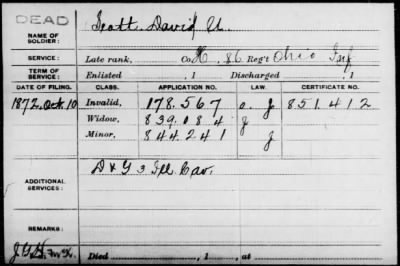 DEAD
NAME OF SOLDIER: Scott, David U.
SERVICE: Late rank, Co. K, 86 Reg't Ohio Inf
TERM OF SERVICE: Enlisted , 1 Discharged , 1
DATE OF FILING. CLASS. APPLICATION NO. LAW. CERTIFICATE NO.
1872, Oct. 10 Invalid, 178.567 o. J 851.412
Widow, 839.084 J
Minor, 844.241 J
ADDITIONAL SERVICES: D & G 3 Ill Cav.
REMARKS:
Died , 1 , at